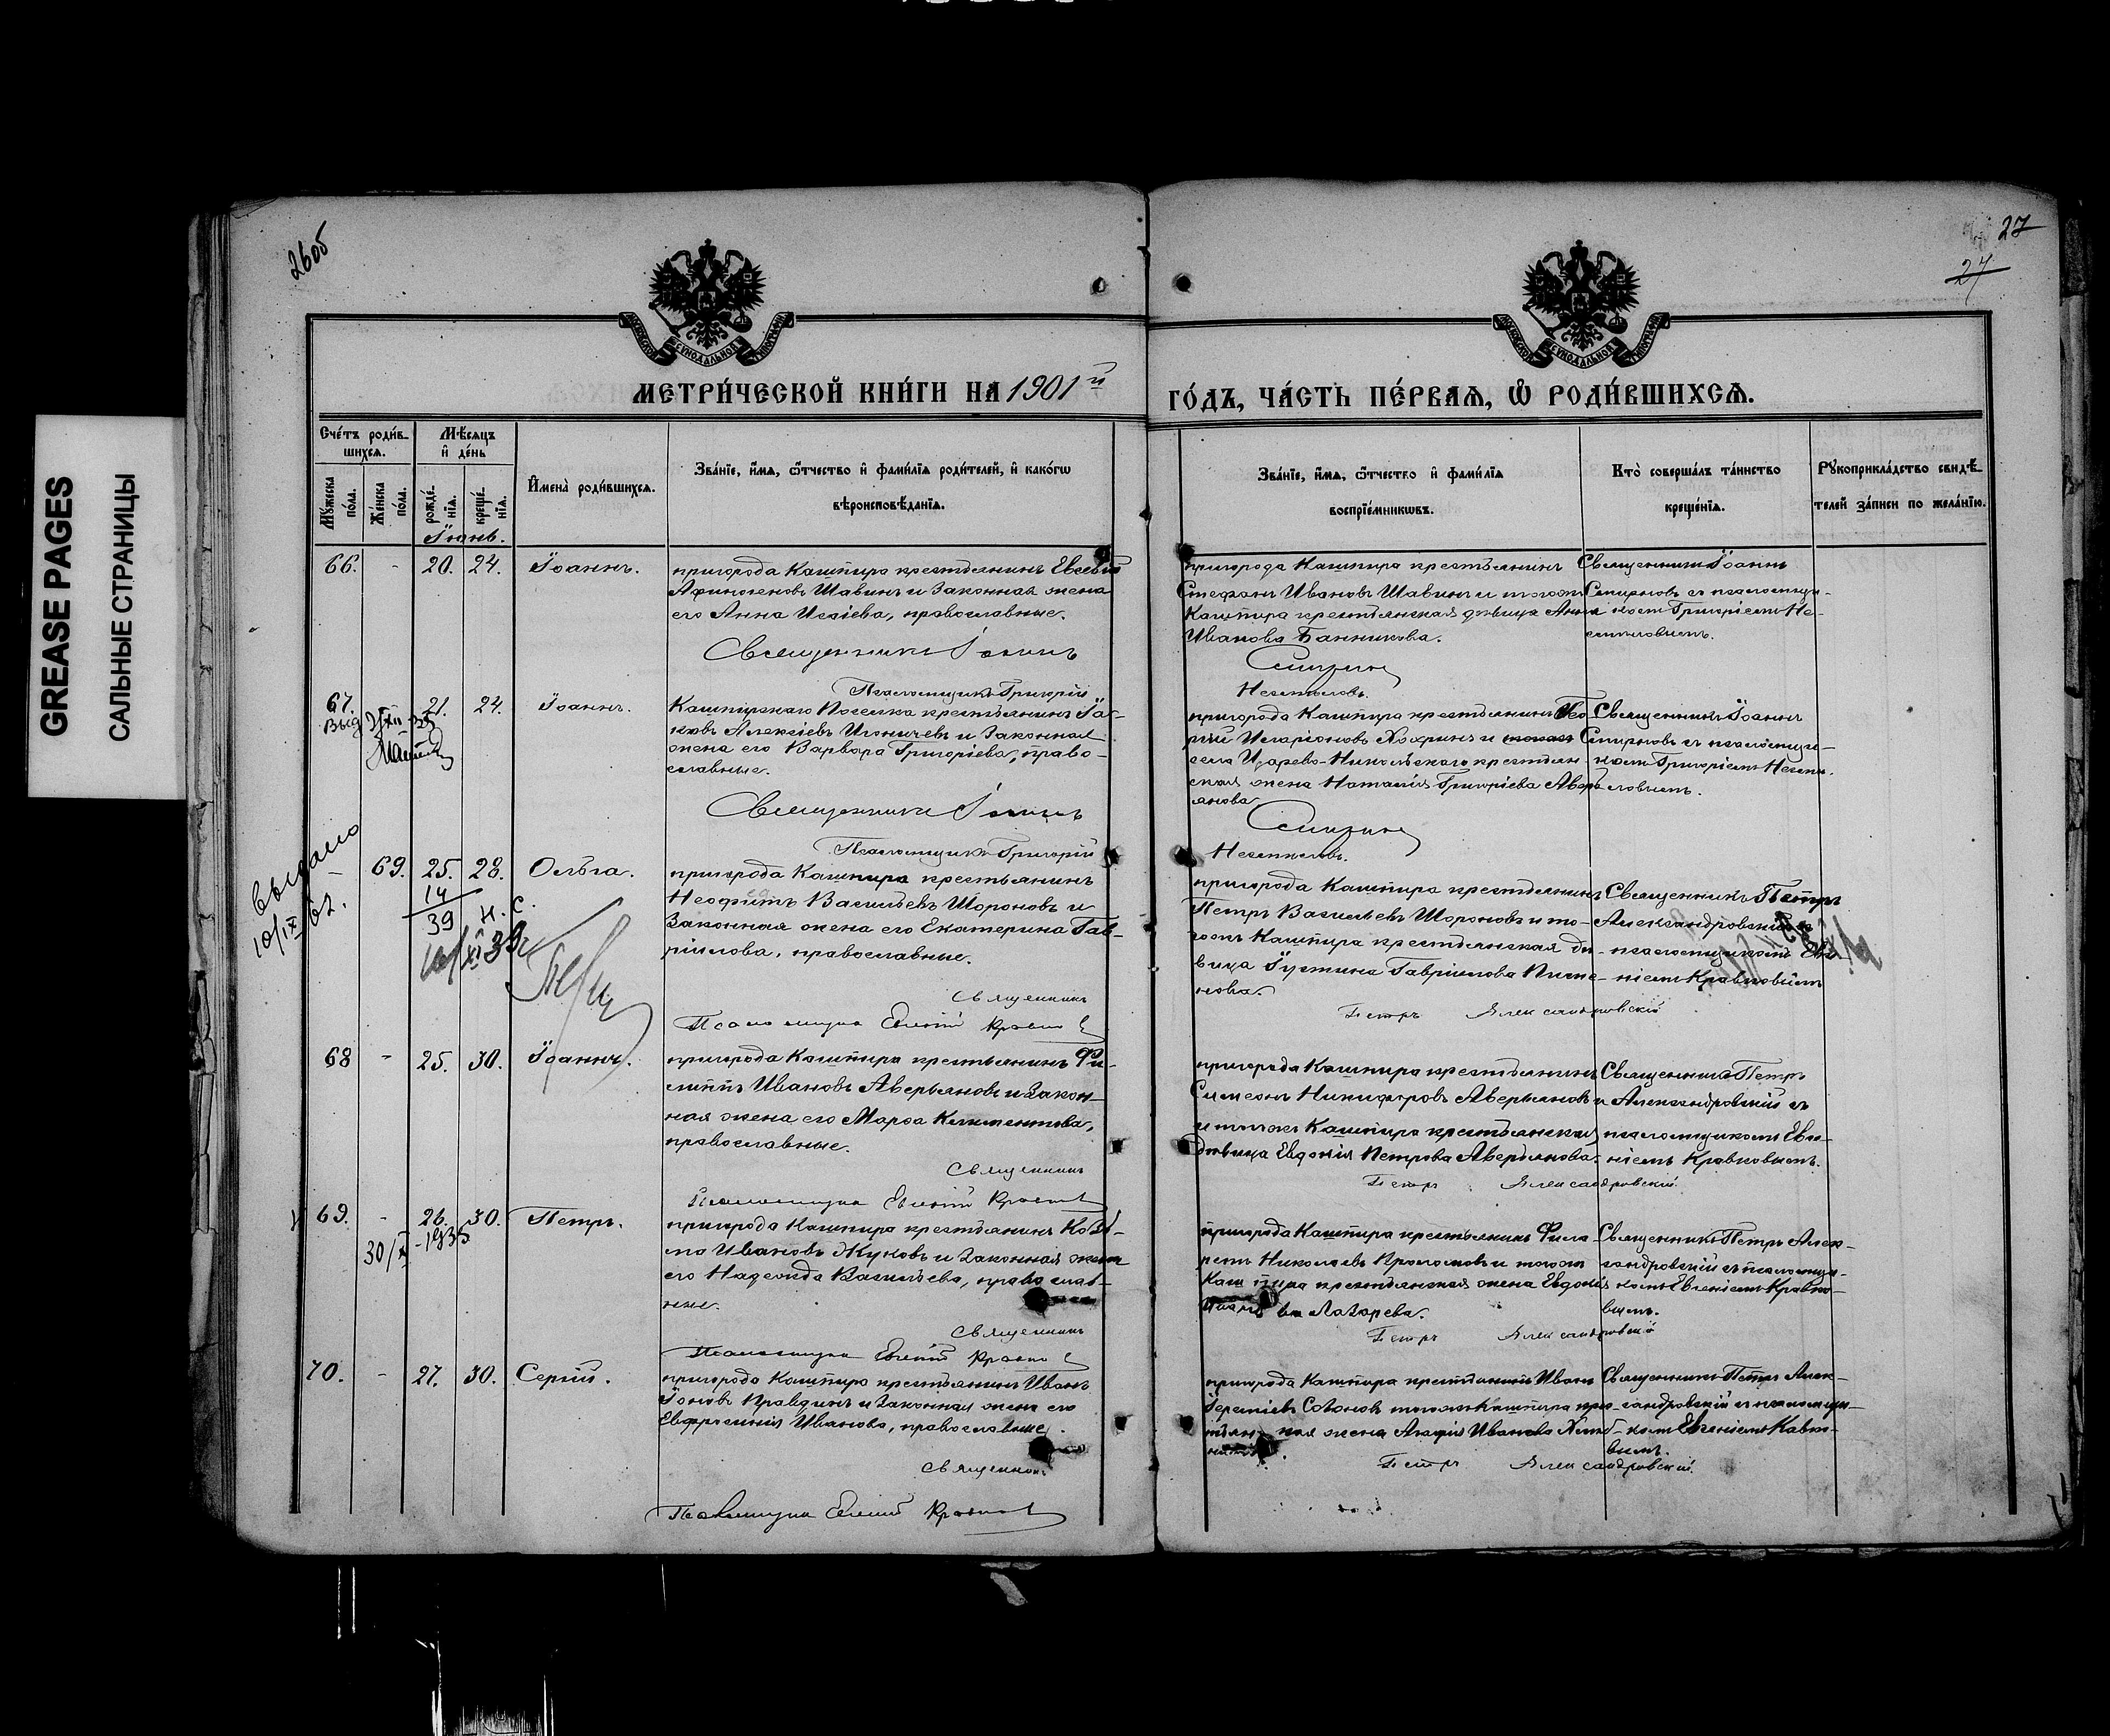 GREASE PAGES
САЛЬНЫЕ СТРАНИЦЫ
26об
27
27
МОСКОВСКОЙ СѴНОДАЛЬНОЙ ТИПОГРАФІИ
МОСКОВСКОЙ СѴНОДАЛЬНОЙ ТИПОГРАФІИ
МЕТРИ́ЧЕСКОЙ КНИ́ГИ НА 1901й
ГО́ДЪ, ЧА́СТЬ ПЕ́РВАѦ, Ѡ҆ РОДИ́ВШИХСѦ.
Сче́тъ роди́в-
шихсѧ.
Мѣ́сѧцъ
и҆ де́нь
Мꙋ́жеска по́ла.
Же́нска по́ла.
рожде́-нїѧ.
креще́-нїѧ.
Іюнь.
И҆мена̀ роди́вшихсѧ.
Зва́нїе, и҆́мѧ, ѻ҆́тчество и҆ фами́лїѧ роди́телей, и҆ како́гѡ
вѣроисповѣ́данїѧ.
Зва́нїе, и҆́мѧ, ѻ҆́тчество и҆ фами́лїѧ
воспрїе́мникѡвъ.
Кто̀ соверша́лъ та́инство
креще́нїѧ.
Рꙋкоприкла́дство свидѣ́-
телей за́писи по жела́нїю.
66. - 20. 24. Іоаннъ.
пригорода Кашпира крестьянинъ Евсевій
Афиногеновъ Шавинъ и законная жена
его Анна Исаіева, православные.
Священникъ Іоаннъ
Псаломщикъ Григорій
пригорода Кашпира крестьянинъ
Стефанъ Ивановъ Шавинъ и тогожъ
Кашпира крестьянская дѣвица Анна
Иванова Банникова.
Смирновъ
Священникъ Іоаннъ
Смирновъ съ псаломщи-
комъ Григоріемъ Не-
67. - 21. 24. Іоаннъ.
Кашпирскаго Поселка крестьянинъ Іа-
ковъ Алексіевъ Игоничевъ и законная
жена его Варвара Григоріева, право-
славные.
Священникъ Іоаннъ
Псаломщикъ Григорій
пригорода Кашпира крестьянинъ Гео-
ргій Иларіоновъ Хохринъ и
села Царево-Никольскаго крестьян-
ская жена Наталія Григоріева Аверь-
янова.
Смирновъ
Священникъ Іоаннъ
Смирновъ съ псаломщи-
комъ Григоріемъ
Выдано
10/IX 62.
69. 25. 28. Ольга.
14
39 н. с.
пригорода Кашпира крестьянинъ
Неофитъ Васильевъ Шороновъ и
законная жена его Екатерина Гав-
ріилова, православные.
Священникъ
Псаломщикъ Евгеній
пригорода Кашпира крестьянинъ
Петръ Васильевъ Шороновъ и то-
гожъ Кашпира крестьянская дѣ-
вица Іустина Гавріилова Пиме-
нова.
Петръ Александровскій
Священникъ Петръ
Александровскій съ
псаломщикомъ Евге-
ніемъ Кравковымъ
68 - 25. 30. Іоаннъ.
пригорода Кашпира крестьянинъ Фи-
липпъ Ивановъ Аверьяновъ и закон-
ная жена его Марѳа Климентова,
православные.
Священникъ
Псаломщикъ Евгеній
пригорода Кашпира крестьянинъ
Симеонъ Никифоровъ Аверьяновъ и
тогожъ Кашпира крестьянская
дѣвица Евдокія Петрова Аверьянова.
Петръ Александровскій
Священникъ Петръ
Александровскій съ
псаломщикомъ Евге-
ніемъ Кравковымъ.
69. - 26. 30. Петръ.
пригорода Кашпира крестьянинъ Козь-
ма Ивановъ Жуковъ и законная жена
его Надежда Васильева, православ-
ные.
Священникъ
Псаломщикъ Евгеній
пригорода Кашпира крестьянинъ Фила-
ретъ Николаевъ и тогожъ
Кашпира крестьянская жена Евдокія
Лазарева.
Петръ Александровскій
Священникъ Петръ Алек-
сандровскій съ псаломщи-
комъ Евгеніемъ Кравко-
вымъ.
70. - 27. 30. Сергій.
пригорода Кашпира крестьянинъ Иванъ
Іоновъ Правдинъ и законная жена его
Евфросинія Иванова, православные.
Священникъ
Псаломщикъ Евгеній
пригорода Кашпира крестьянинъ Иванъ
тогожъ Кашпира кре-
жена Агафія Иванова
Петръ Александровскій.
Священникъ Петръ Алек-
сандровскій съ псаломщи-
комъ Евгеніемъ Кавко-
вымъ.